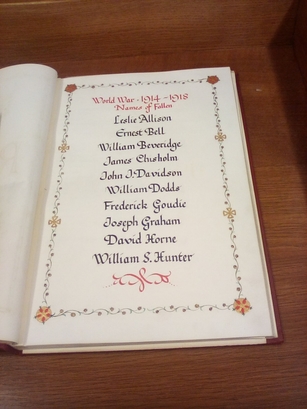 World War · 1914-1918
Names of Fallen
Leslie Allison
Ernest Bell
William Beveridge
James Chisholm
John J. Davidson
William Dodds
Frederick Goudie
Joseph Graham
David Horne
William S. Hunter